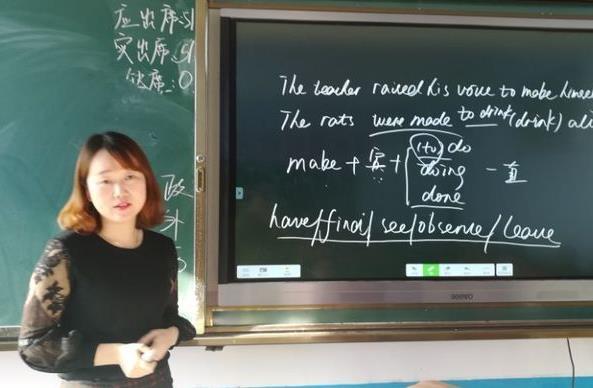 应出席:51
实出席:51
缺席:0
政
The teacher raised his voice to make himself
The rats were made to drink (drink) al
make + 宾 + (to) do
doing - 直
done
have/find/see/observe/leave
seewo